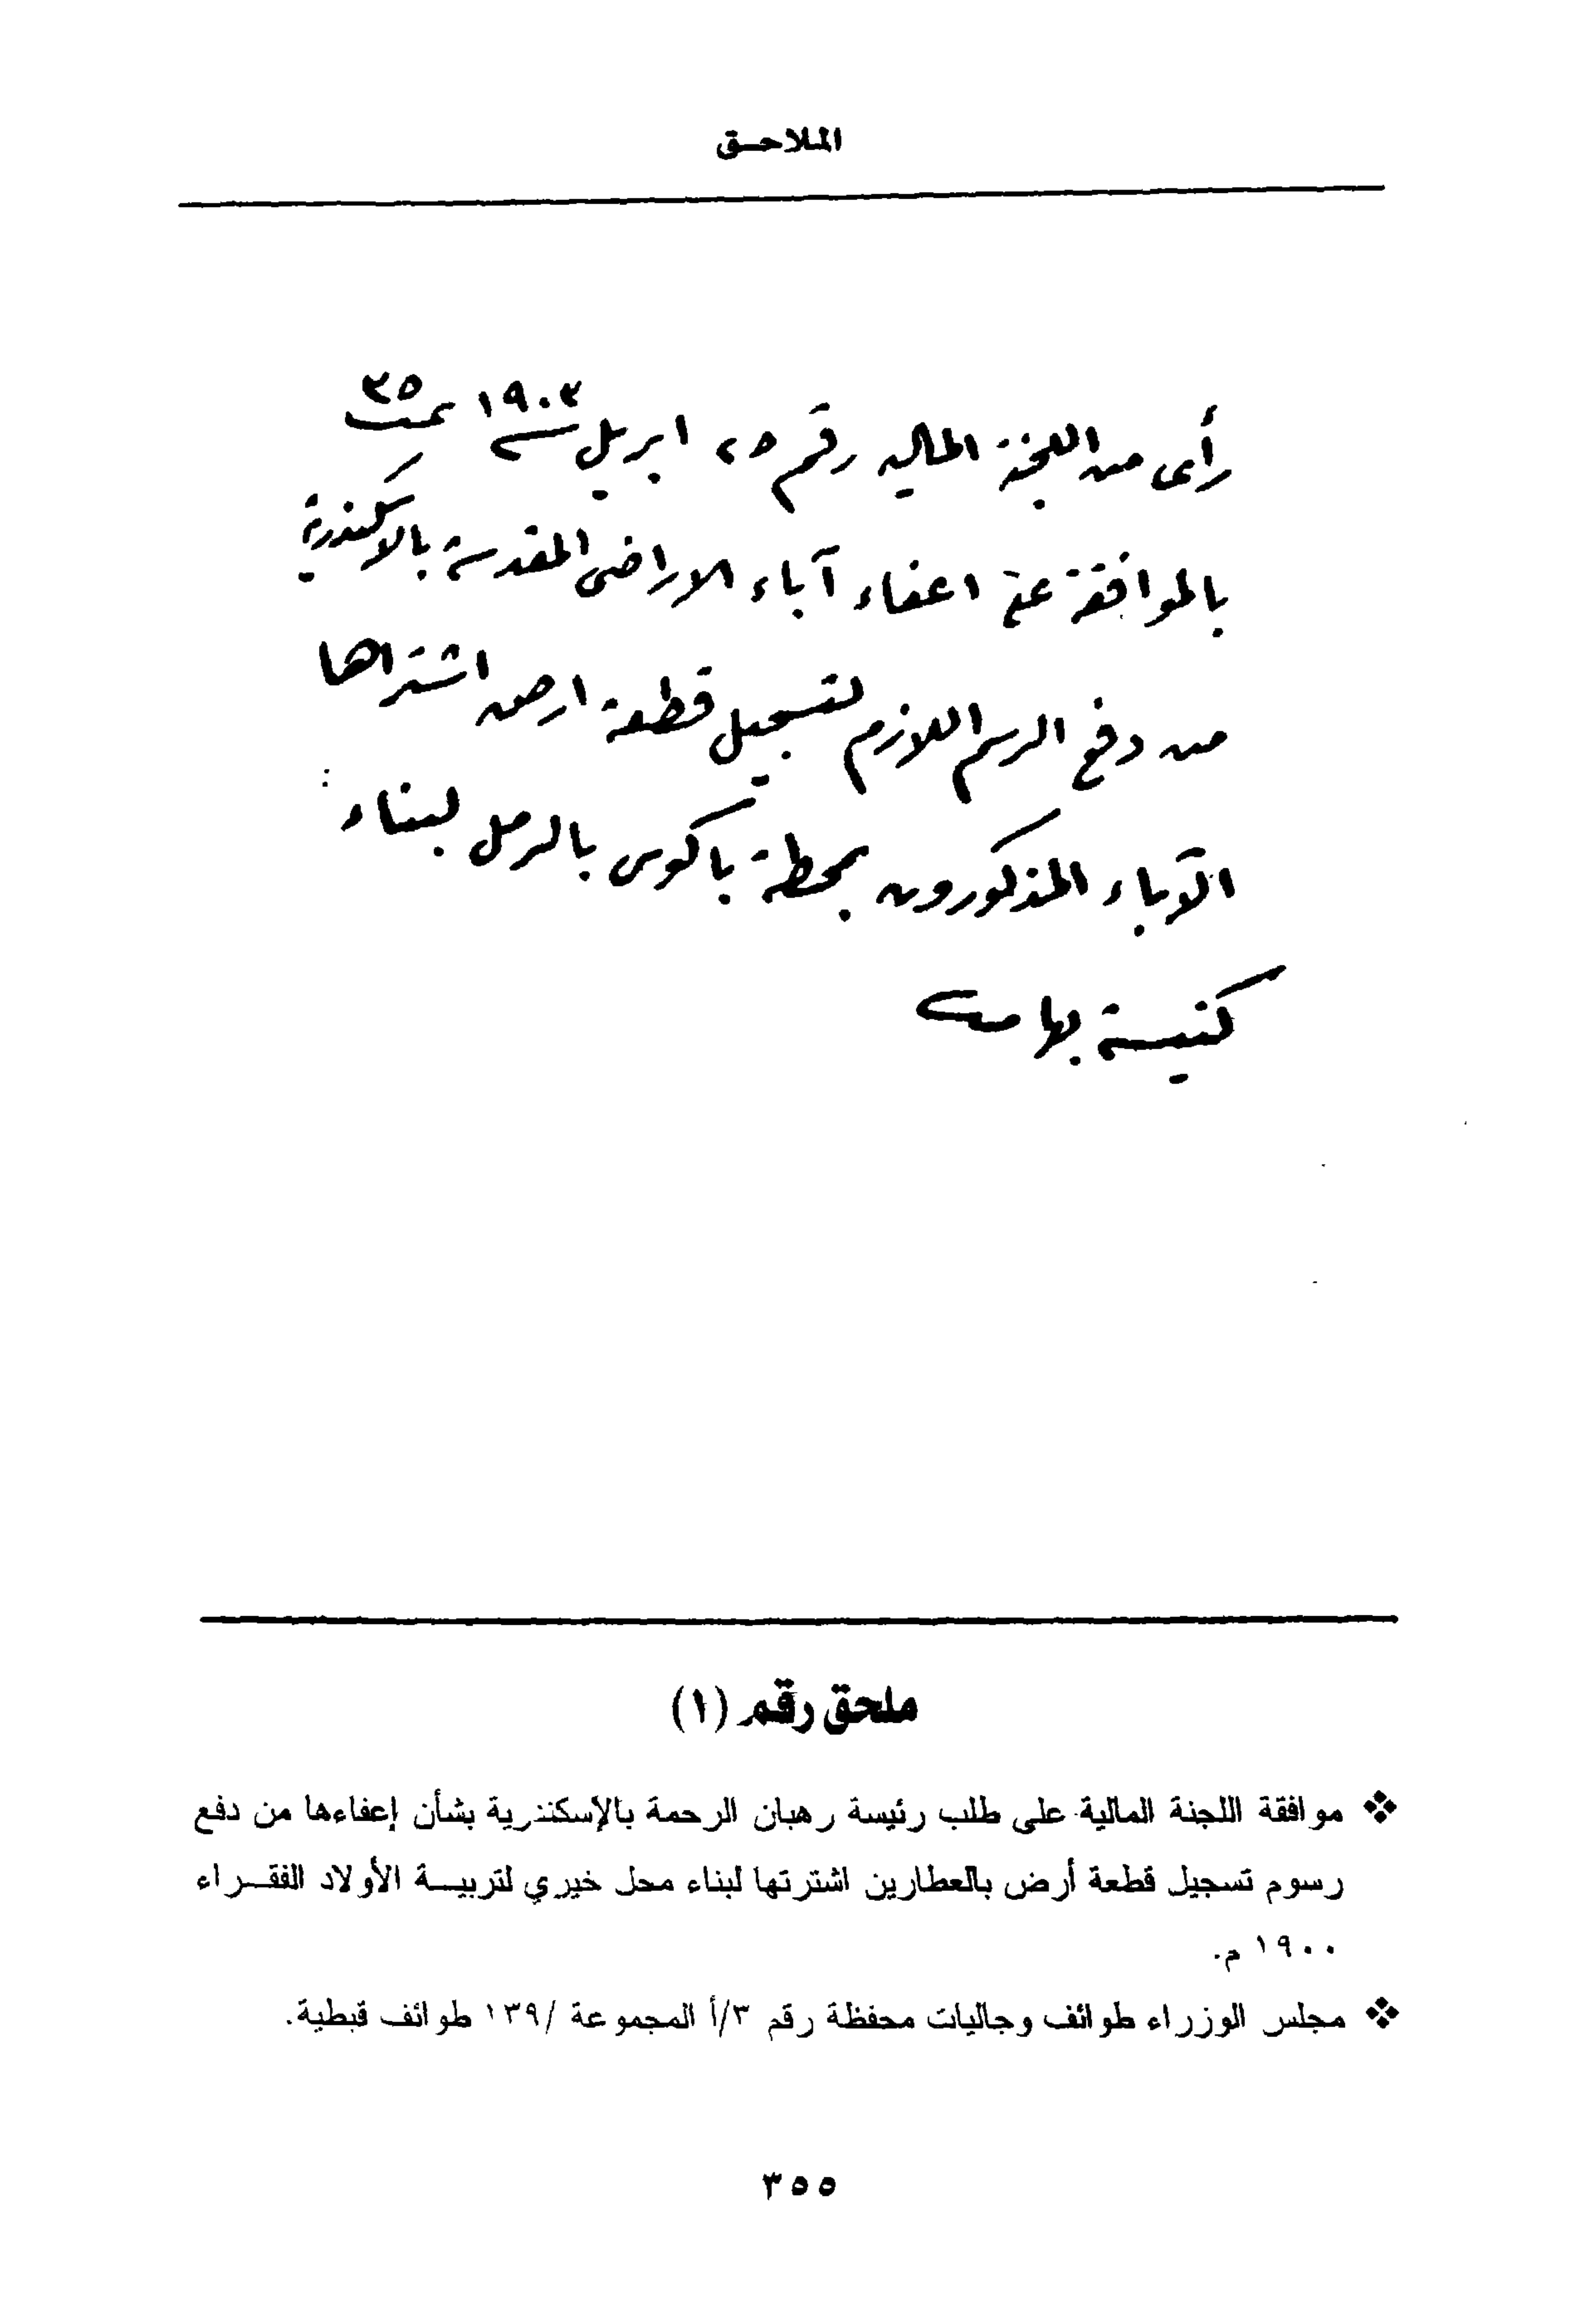 الملاحـق
رأى من اللجنة المالية رقم ٢٥ ابريل سنة ١٩٠٣ نمرة ٣٥
بالموافقة على اعفاء آباء الاراضى المقدسة بالاسكندرية
من دفع الرسم اللازم لتسجيل قطعة ارض اشتراها
الآباء المذكورون بمحطة باكوس بالرمل لبناء
كنيسة بها
ملحق رقم (١)
❖ موافقة اللجنة المالية على طلب رئيسة رهبان الرحمة بالإسكندرية بشأن إعفاءها من دفع
رسوم تسجيل قطعة أرض بالعطارين اشترتها لبناء محل خيري لتربيــة الأولاد الفقــراء
١٩٠٠ م.
❖ مجلس الوزراء طوائف وجاليات محفظة رقم ٣/أ المجموعة /١٣٩ طوائف قبطية.
٣٥٥